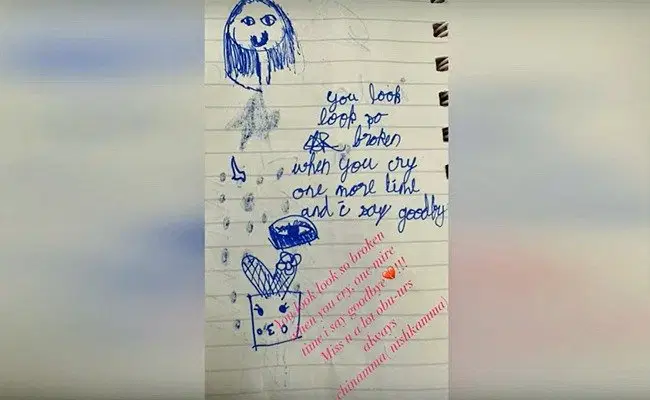 you look
look so
broken
when you cry
one more time
and i say goodby
You look look so broken
when you cry, one mire
time i say goodbye❤️!!!
Miss u a lot obu-urs
always
chinamma( nishkamma)